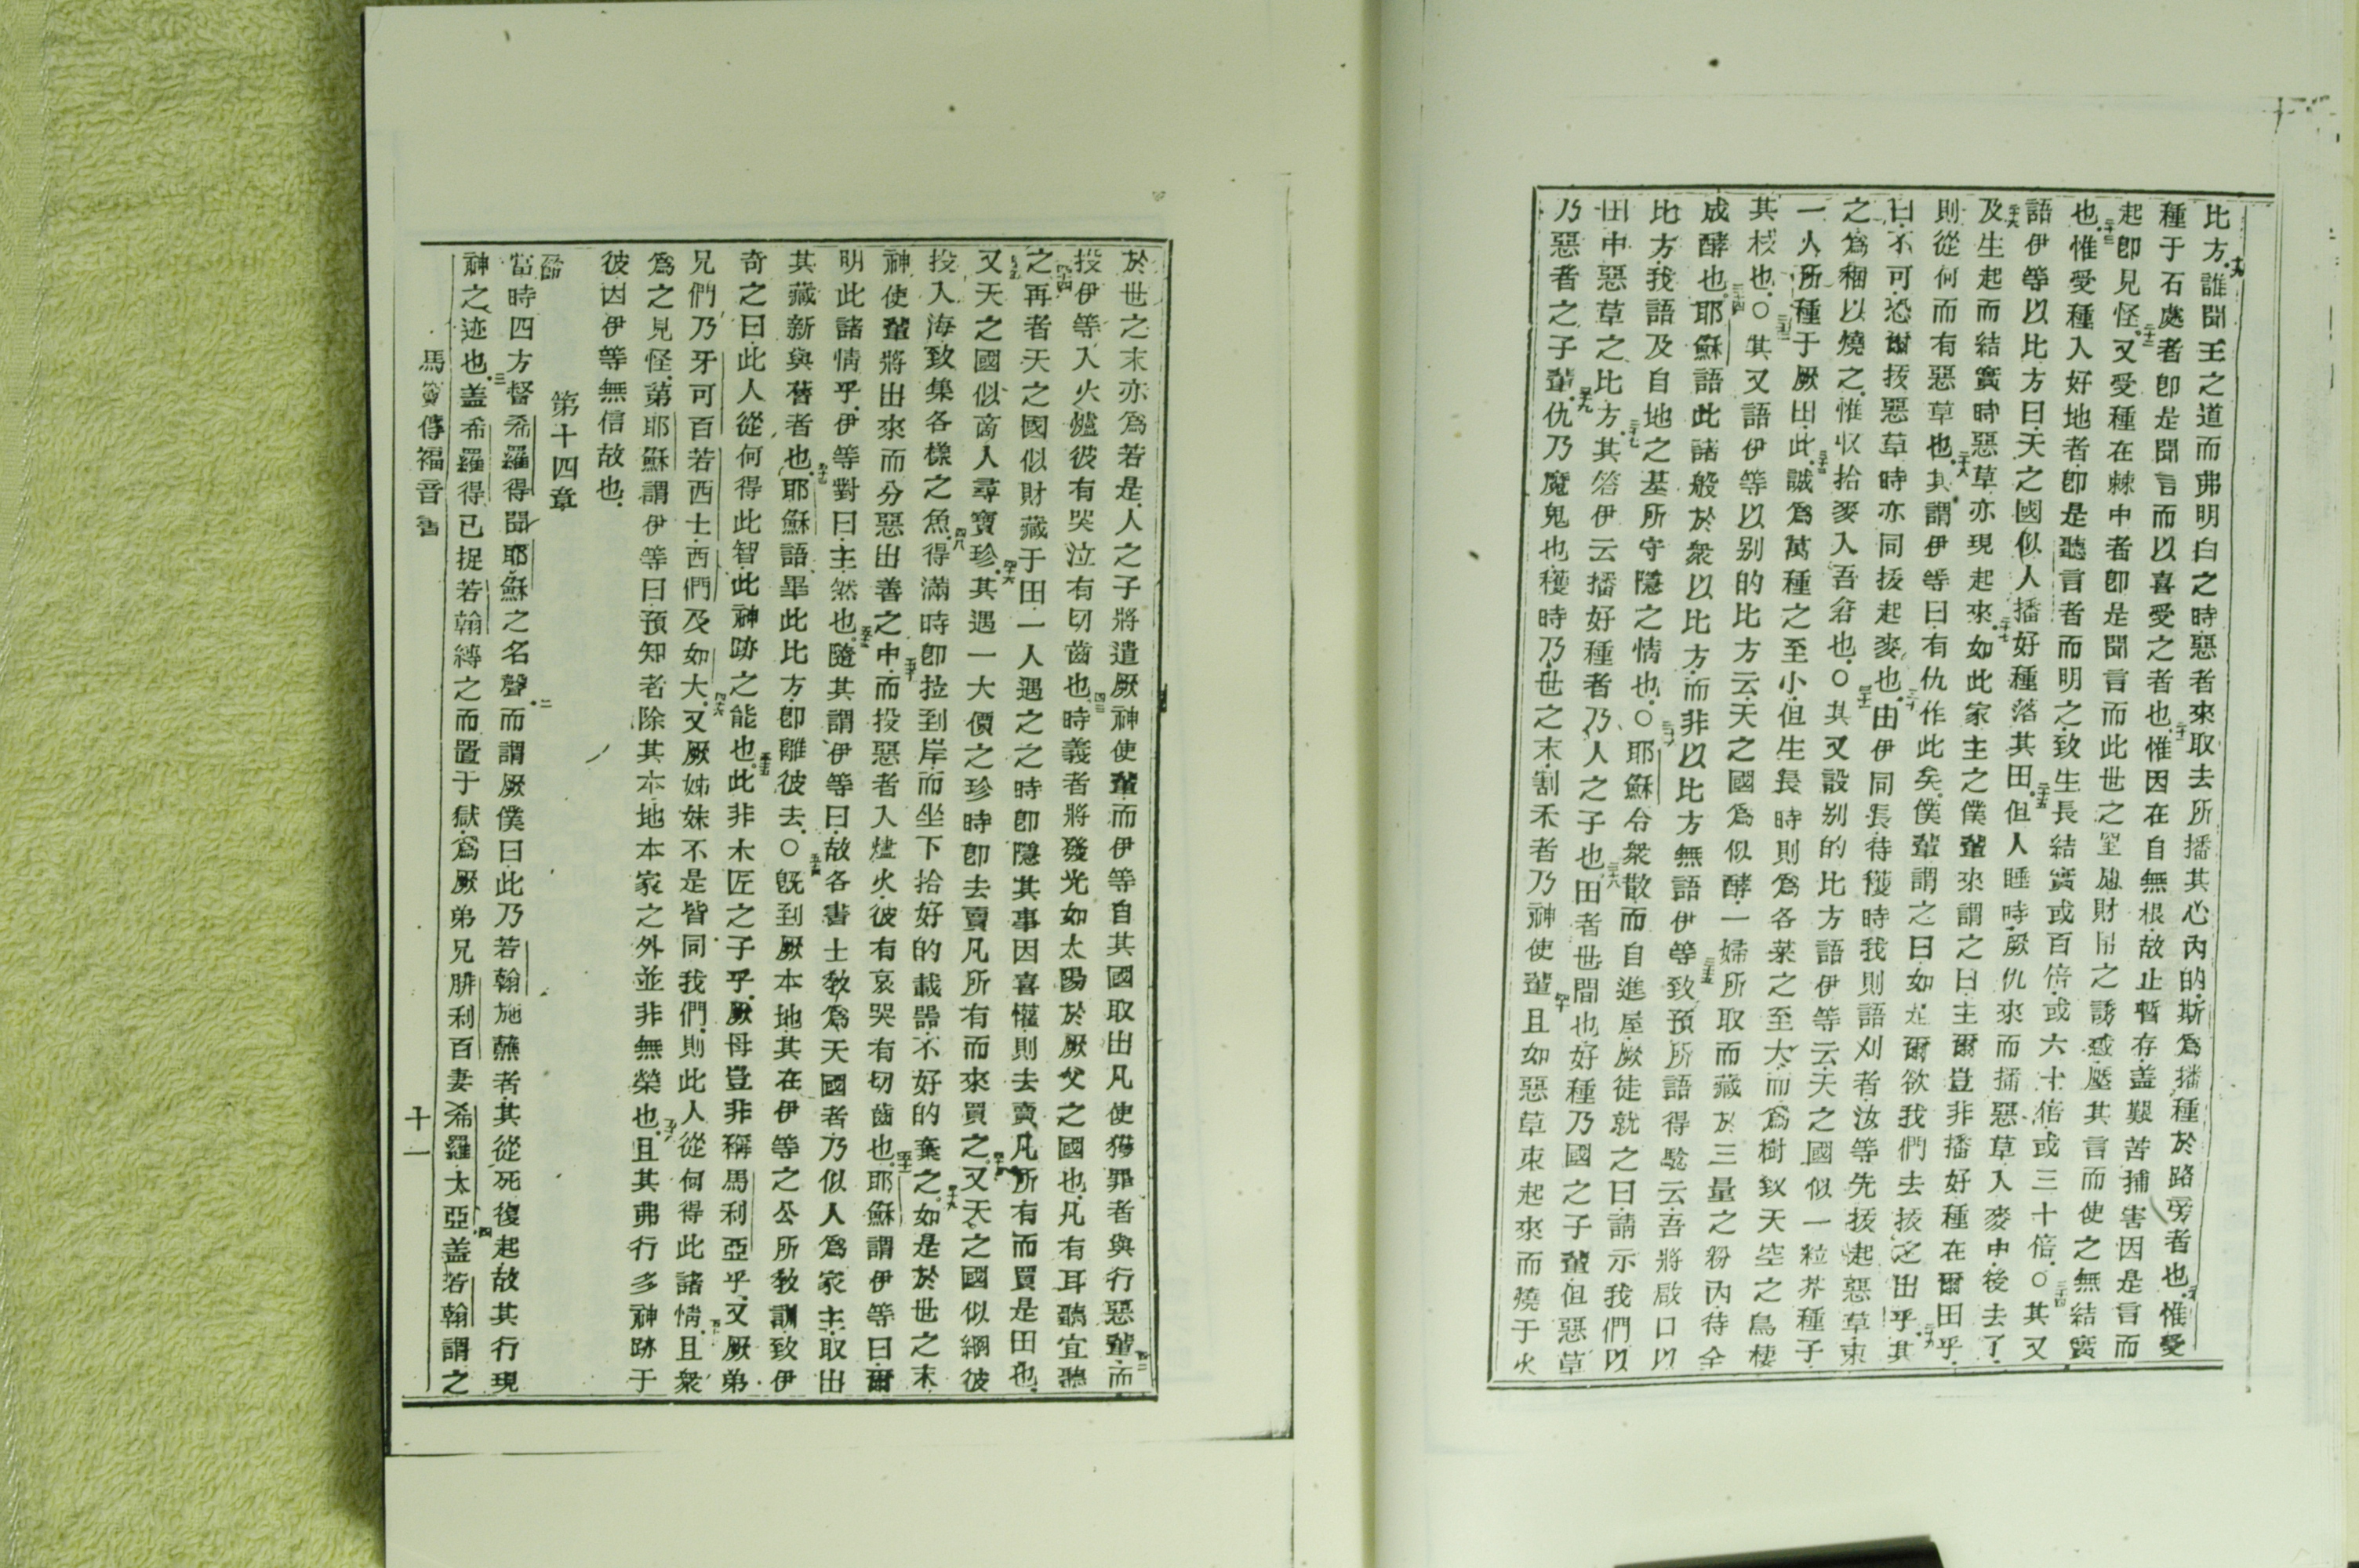 比方.十九誰聞王之道而弗明白之時惡者來取去所播其心內的.斯為播種於路旁者也.二十惟受
種于石處者卽是聞言而以喜受之者也.二十一惟因在自無根.故止暫存.盖艱苦捕害因是言而
起卽見怪.二十二又受種在棘中者卽是聞言而此世之慮財帛之誘惑壓其言而使之無結實
也.二十三惟受種入好地者.卽是聽言者而明之.致生長結實或百倍.或六十倍.或三十倍.○二十四其又
語伊等以比方曰.天之國似人播好種落其田.二十五但人睡時.厥仇來而播惡草入麥中.後去了.
二十六及生起而結實時惡草亦現起來.二十七如此家主之僕輩來謂之曰.主爾豈非播好種在爾田乎.
則從何而有惡草也.二十八其謂伊等曰.有仇作此矣.僕輩謂之曰如是爾欲我們去拔之出乎.二十九其
曰.不可.恐爾拔惡草時亦同拔起麥也.三十由伊同長待穫時.我則語刈者汝等先拔起惡草.束
之為稇以燒之.惟收拾麥入吾倉也.○三十一其又設别的比方語伊等云.天之國似一粒芥種子.
一人所種于厥田.三十二此誠為萬種之至小.但生長時則為各菜之至大.而為樹致天空之鳥棲
其枝也.○三十三其又語伊等以别的比方云.天之國為似酵.一婦所取而藏於三量之粉內待全
成酵也.三十四耶穌語此諸般於衆以比方.而非以比方無語伊等.三十五致預所語得驗云.吾將啟口以
比方.我語及自地之基所守隱之情也.○三十六耶穌令衆散而自進屋.厥徒就之曰.請示我們以
田中惡草之比方.三十七其答伊云播好種者乃人之子也.三十八田者世間也.好種乃國之子輩.但惡草
乃惡者之子輩.三十九仇乃魔鬼也.穫時乃世之末.割禾者乃神使輩.四十且如惡草束起來而燒于火
於世之末亦為若是.四十一人之子將遣厥神使輩.而伊等自其國取出凡使獲罪者與行惡輩.四十二而
投伊等入火爐.彼有哭泣有切齒也.四十三時義者將發光如太陽於厥父之國也.凡有耳聽宜聽
之.四十四再者天之國似財藏于田.一人遇之之時卽隱其事.因喜懽則去賣凡所有而買是田也.
四十五又天之國似商人尋寶珍.四十六其遇一大價之珍時卽去賣凡所有而來買之.四十七又天之國似網彼
投入海致集各樣之魚.四十八得滿時卽拉到岸.而坐下拾好的載器.不好的棄之.四十九如是於世之末
神使輩將出來而分惡出善之中.五十而投惡者入爐火.彼有哀哭有切齒也.五十一耶穌謂伊等曰.爾
明此諸情乎.伊等對曰.主然也.五十二隨其謂伊等曰.故各書士教為天國者乃似人為家主.取出
其藏新與舊者也.五十三耶穌語畢此比方.卽離彼去.○五十四旣到厥本地.其在伊等之公所教訓.致伊
奇之曰.此人從何得此智.此神跡之能也.五十五此非木匠之子乎.厥母豈非稱馬利亞乎.又厥弟
兄們乃牙可百若西士.西們及如大.五十六又厥姊妹不是皆同我們.則此人從何得此諸情.五十七且衆
為之見怪.第耶穌謂伊等曰預知者除其本地本家之外並非無榮也.五十八且其弗行多神跡于
彼因伊等無信故也.
第十四章
一節當時四方督希羅得聞耶穌之名聲.二而謂厥僕曰此乃若翰施蘸者.其從死復起.故其行現
神之迹也.三盖希羅得已捉若翰縛之而置于獄.為厥弟兄腓利百妻希羅太亞.四盖若翰謂之
馬竇傳福音書　十一